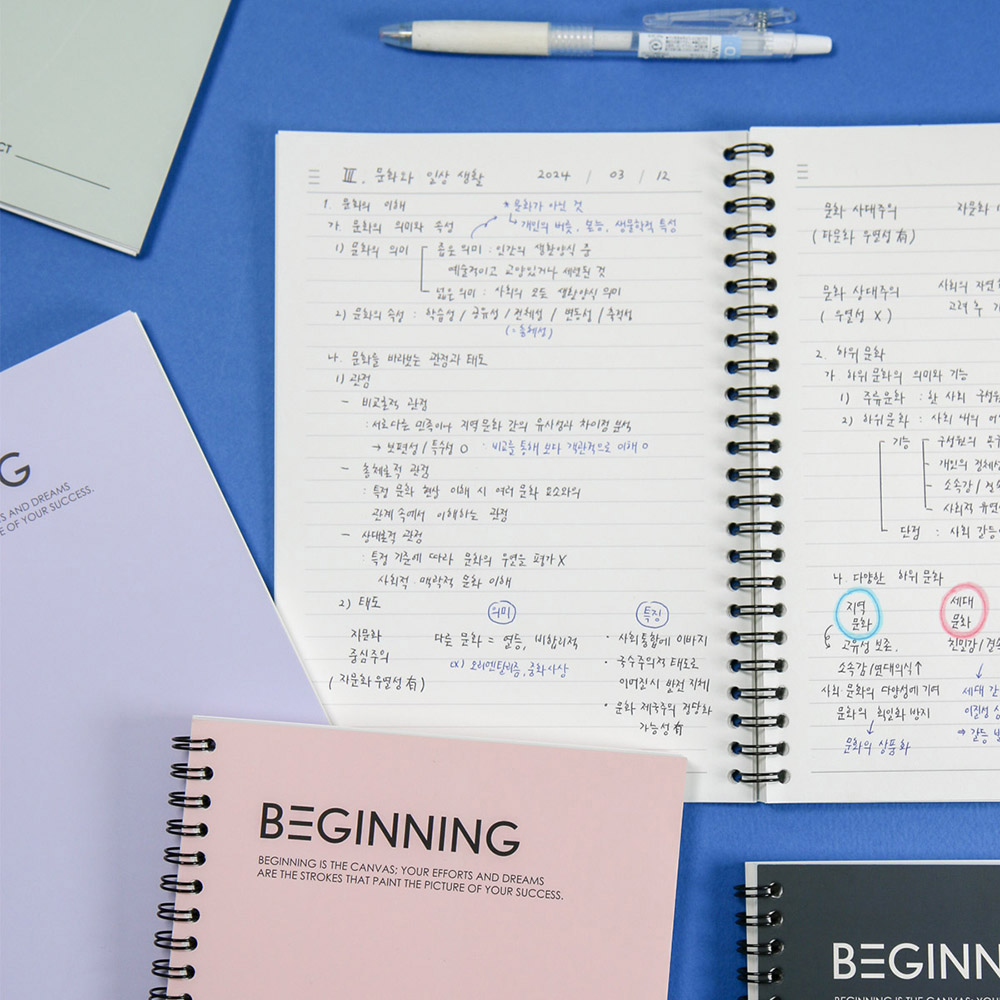 CT
Ⅲ. 문화와 일상 생활 2024 / 03 / 12
1. 문화의 이해
* 문화가 아닌 것
가. 문화의 의미와 속성
↳ 개인의 버릇, 본능, 생물학적 특성
1) 문화의 의미
좁은 의미 : 인간의 생활양식 중
예술적이고 교양있거나 세련된 것
넓은 의미 : 사회의 모든 생활양식 의미
2) 문화의 속성 : 학습성 / 공유성 / 전체성 / 변동성 / 축적성
(= 총체성)
나. 문화를 바라보는 관점과 태도
1) 관점
- 비교론적 관점
: 서로 다른 민족이나 지역 문화 간의 유사성과 차이점 분석
→ 보편성 / 특수성 O : 비교를 통해 보다 객관적으로 이해 O
- 총체론적 관점
: 특정 문화 현상 이해 시 여러 문화 요소와의
관계 속에서 이해하는 관점
- 상대론적 관점
: 특정 기준에 따라 문화의 우열을 평가 X
사회적·맥락적 문화 이해
2) 태도
의미
특징
자문화
중심주의
(자문화 우열성 有)
다른 문화 = 열등, 비합리적
ex) 오리엔탈리즘, 중화사상
· 사회통합에 이바지
· 국수주의적 태도로
이어질 시 발전 지체
· 문화 제국주의 정당화
가능성 有
문화 사대주의
(타문화 우열성 有)
문화 상대주의
(우열성 X)
사회의 자연
고려 후
2. 하위 문화
가. 하위 문화의 의미와 기능
1) 주류문화 : 한 사회 구성원
2) 하위문화 : 사회 내의
기능
구성원의
개인의 정체성
소속감 /
사회적 유연
단점 : 사회 갈등
나. 다양한 하위 문화
지역
문화
세대
문화
고유성 보존,
소속감/연대의식↑
사회·문화의 다양성에 기여
문화의 획일화 방지
↓
문화의 상품화
친밀감/결속
↓
세대 간
이질성
⇒ 갈등
G
S AND DREAMS
E OF YOUR SUCCESS.
BEGINNING
BEGINNING IS THE CANVAS; YOUR EFFORTS AND DREAMS
ARE THE STROKES THAT PAINT THE PICTURE OF YOUR SUCCESS.
BEGINN
BEGINNING IS THE CANVAS; YOU